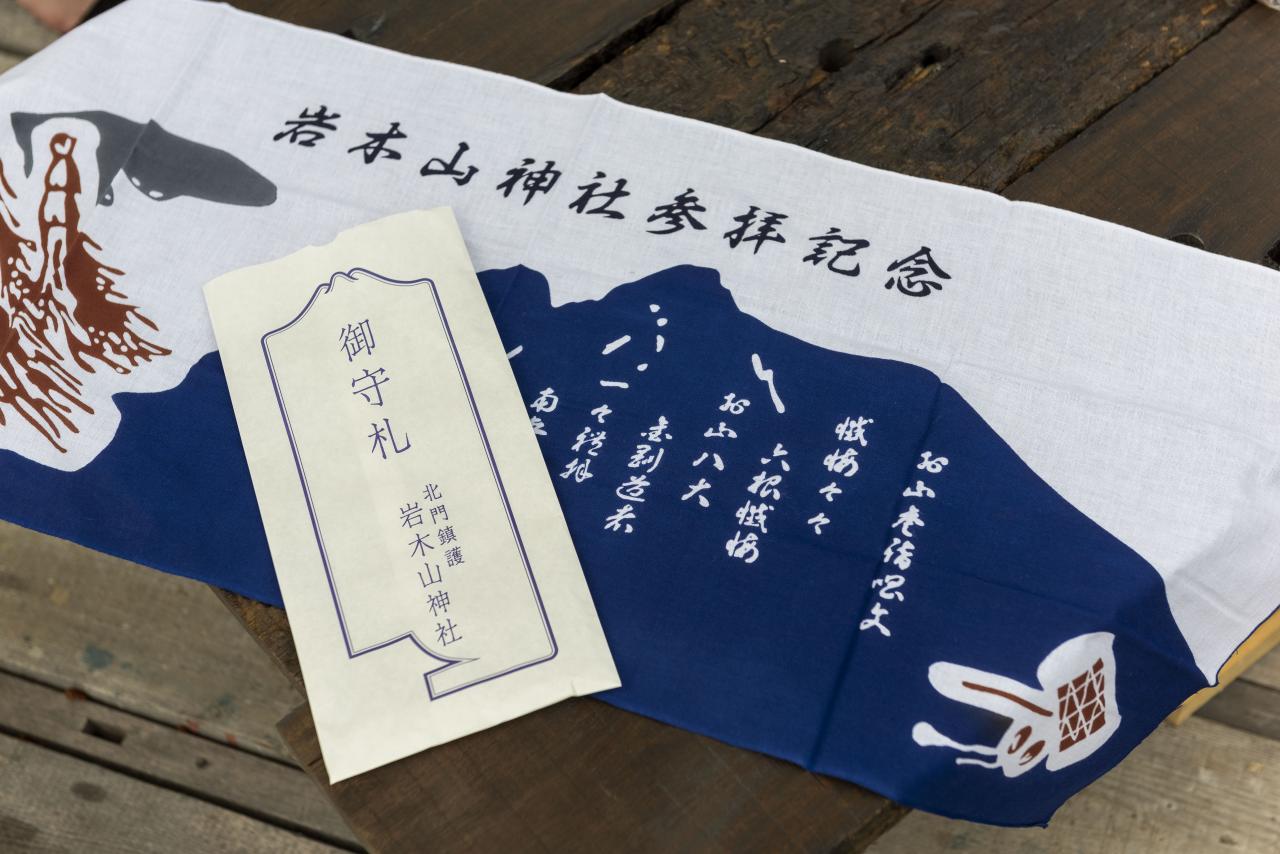 岩木山神社参拝記念
お山参詣唱文
懺悔々々
六根懺悔
お山八大
金剛道者
一々礼拝
南
御守札
北門鎮護
岩木山神社